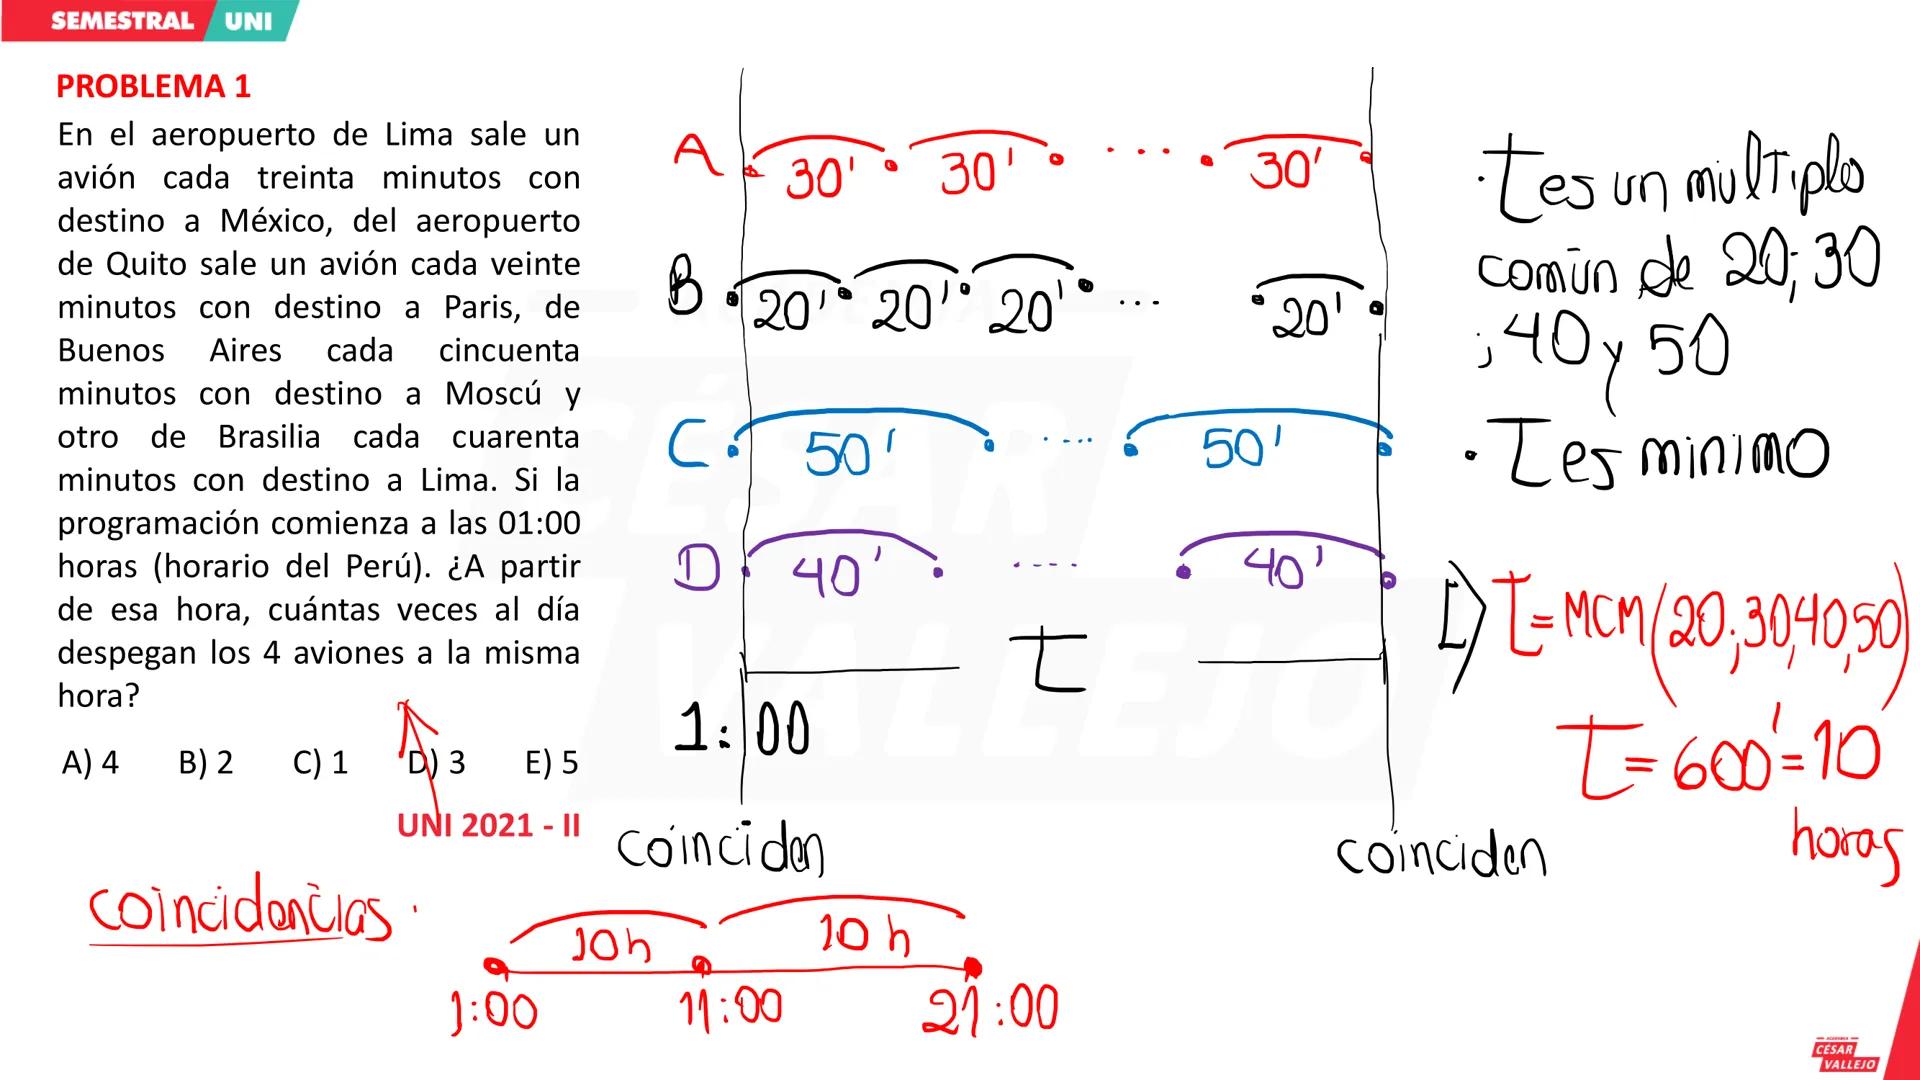 SEMESTRAL UNI
PROBLEMA 1
En el aeropuerto de Lima sale un
avión cada treinta minutos con
destino a México, del aeropuerto
de Quito sale un avión cada veinte
minutos con destino a Paris, de
Buenos Aires cada cincuenta
minutos con destino a Moscú y
otro de Brasilia cada cuarenta
minutos con destino a Lima. Si la
programación comienza a las 01:00
horas (horario del Perú). ¿A partir
de esa hora, cuántas veces al día
despegan los 4 aviones a la misma
hora?
A) 4 B) 2 C) 1 D) 3 E) 5
UNI 2021 - II
A 30' 30' .... 30'
B 20' 20' 20' ... 20'
C 50' .... 50'
D 40' .... 40'
T
1:00
coinciden
coinciden
• T es un multiplo
común de 20; 30
; 40 y 50
• T es minimo
T = MCM(20;30,40,50)
T = 600' = 10
horas
coincidencias.
10h 10h
1:00 11:00 21:00
CÉSAR
VALLEJO
ACADEMIA
CÉSAR
VALLEJO